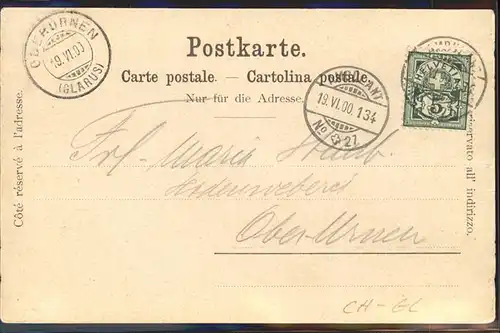 OBERURNEN
19.VI.00
(GLARUS)
Postkarte.
Carte postale. — Cartolina postale.
Nur für die Adresse.
AMBULANT
19.VI.00.134
No 27
HELVETIA
5
Côté réservé à l'adresse.
riservato all' indirizzo.
Frl. Maria Staub.
Seidenweberei
Oberurnen
CH-GL